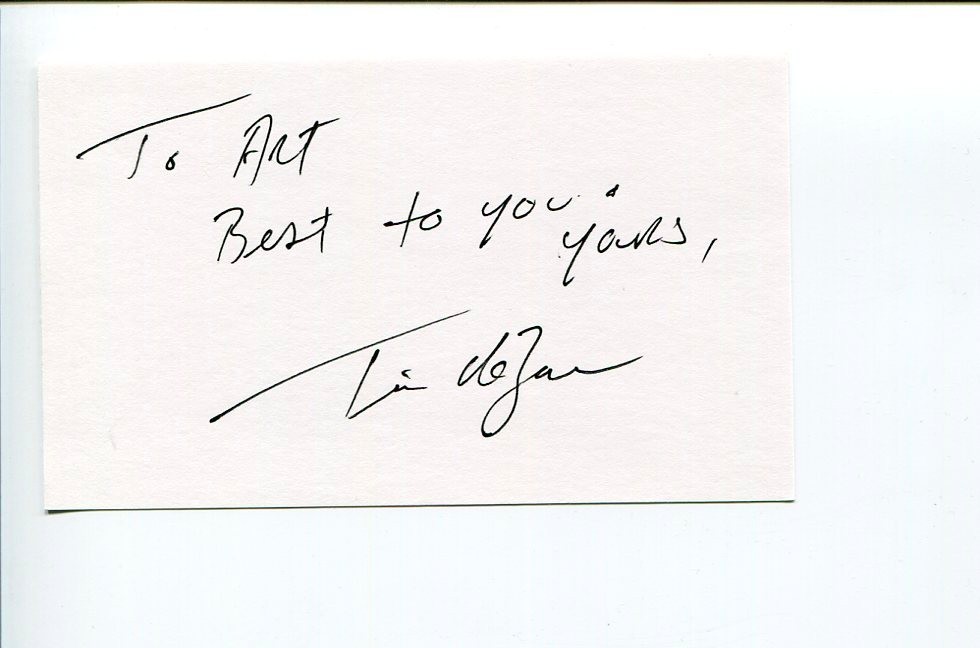 To Art
Best to you &
yours,
Tim deZarn